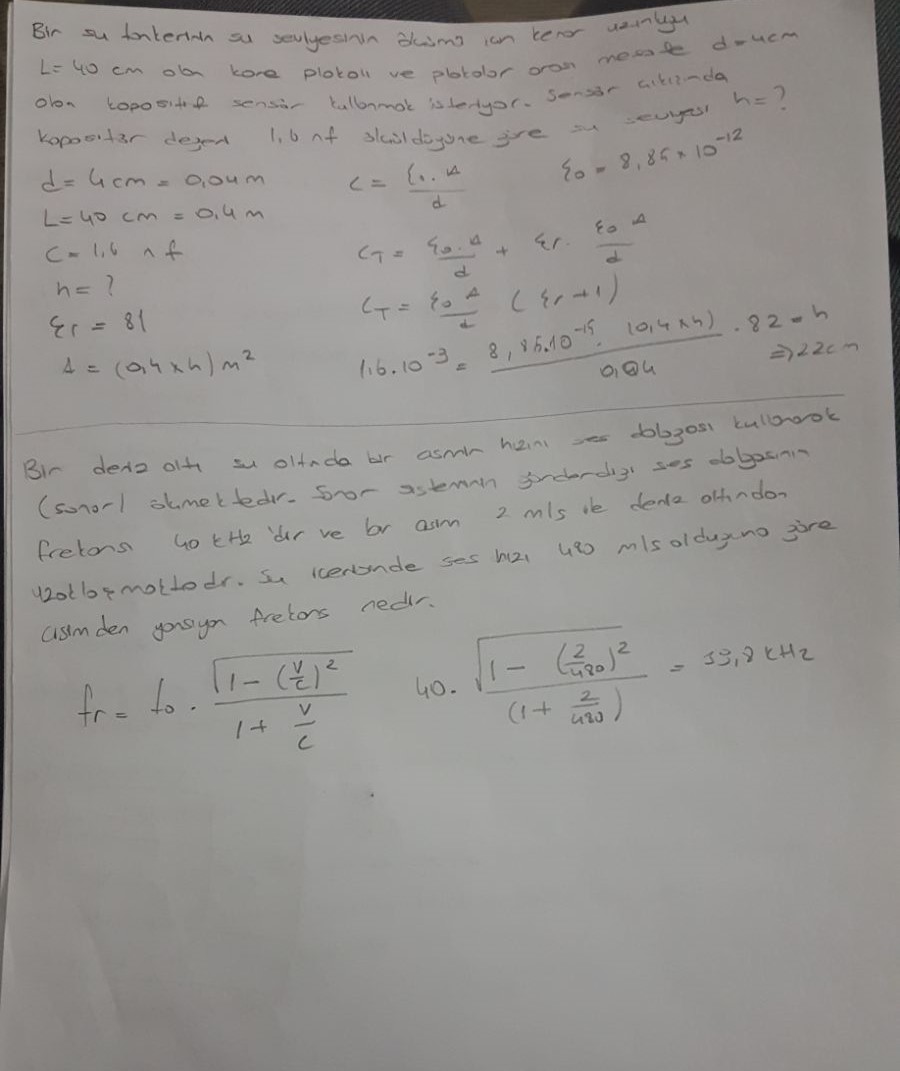 Bir su tankerinin su seviyesinin ölçümü için kenar uzunluğu
L= 40 cm olan kare plakalı ve plakalar arası mesafe d=4cm
olan kapasitif sensör kullanmak isteniyor. Sensör çıkışında
kapasitör değeri 1,6 nf ölçüldüğüne göre su seviyesi h=?
d= 4 cm = 0,04 m    C = ε0.A / d    ε0 = 8,85 x 10^-12
L= 40 cm = 0,4 m
C= 1,6 nf    CT = ε0.A / d + εr. ε0 A / d
h= ?    CT = ε0 A / d (εr +1)
εr = 81
A = (0,4 x h) m²    1,6.10^-3 = 8,85.10^-15. (0,4 x h) / 0,04 . 82 = h ⇒ 22cm
Bir deniz altı su altında bir cismin hızını ses dalgası kullanarak
(sonar) ölçmektedir. Sonar sisteminin gönderdiği ses dalgasının
frekansı 40 kHz 'dir ve bir cisim 2 m/s ile deniz altından
uzaklaşmaktadır. Su içerisinde ses hızı 480 m/s olduğuna göre
cisimden yansıyan frekans nedir.
fr = f0 . √(1 - (v/c)²) / 1 + v/c    40. √(1 - (2/480)²) / (1 + 2/480) = 39,8 kHz